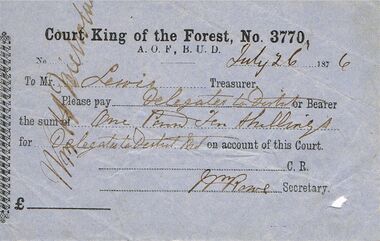 Court King of the Forest, No. 3770,
A. O. F., B. U. D.
No. July 26 1876
To Mr. Lewis Treasurer,
Please pay Delegates to District or Bearer
the sum of One Pound Ten Shillings
for Delegate to District on account of this Court.
C. R.
Wm Rowe Secretary.
£